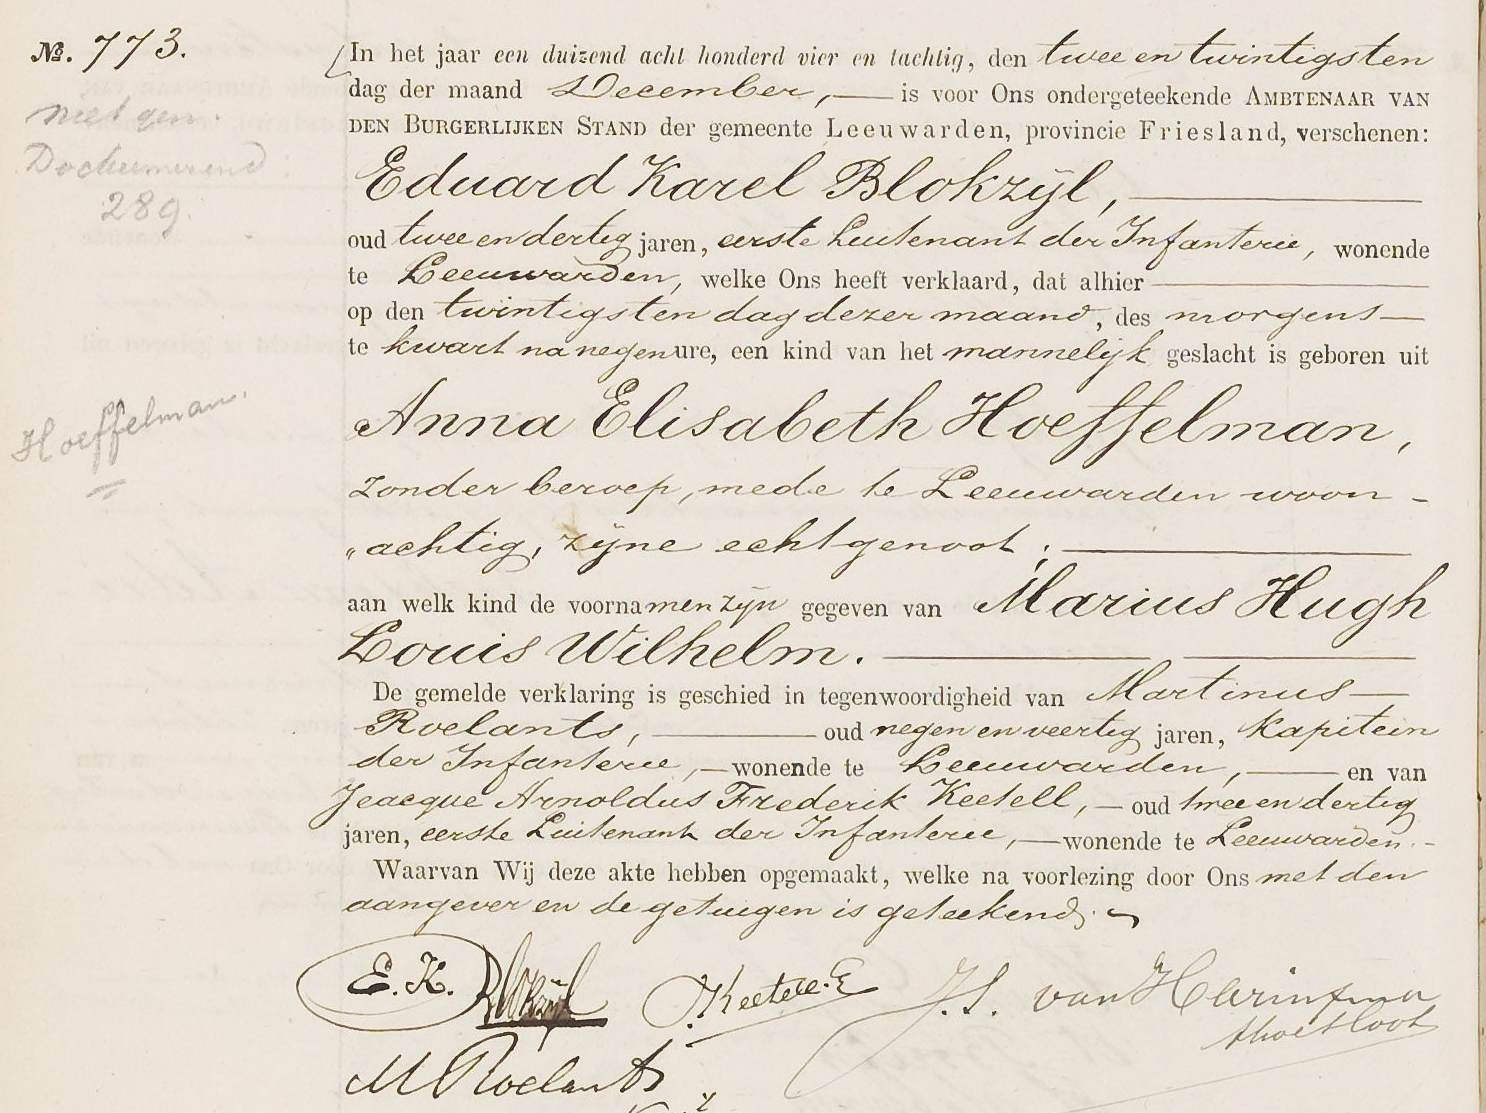 No. 773.
niet gen.
Dockumerend :
289.
Hoeffelman.
In het jaar een duizend acht honderd vier en tachtig, den twee en twintigsten
dag der maand December, — is voor Ons ondergeteekende AMBTENAAR VAN
DEN BURGERLIJKEN STAND der gemeente Leeuwarden, provincie Friesland, verschenen:
Eduard Karel Blokzijl, —
oud twee en dertig jaren, eerste Luitenant der Infanterie, wonende
te Leeuwarden, welke Ons heeft verklaard, dat alhier —
op den twintigsten dag dezer maand, des morgens —
te kwart na negen ure, een kind van het mannelijk geslacht is geboren uit
Anna Elisabeth Hoeffelman,
zonder beroep, mede te Leeuwarden woon-
„achtig, zijne echtgenoot; —
aan welk kind de voornamen zijn gegeven van Marius Hugh
Louis Wilhelm. —
De gemelde verklaring is geschied in tegenwoordigheid van Martinus —
Roelants, — oud negen en veertig jaren, Kapitein
der Infanterie, — wonende te Leeuwarden, — en van
Jeacque Arnoldus Frederik Keetell, — oud twee en dertig
jaren, eerste Luitenant der Infanterie, — wonende te Leeuwarden. -
Waarvan Wij deze akte hebben opgemaakt, welke na voorlezing door Ons met den
aangever en de getuigen is geteekend. ~
E. K. Blokzijl
J. S. van Harinxma
thoe Slooten
M Roelants